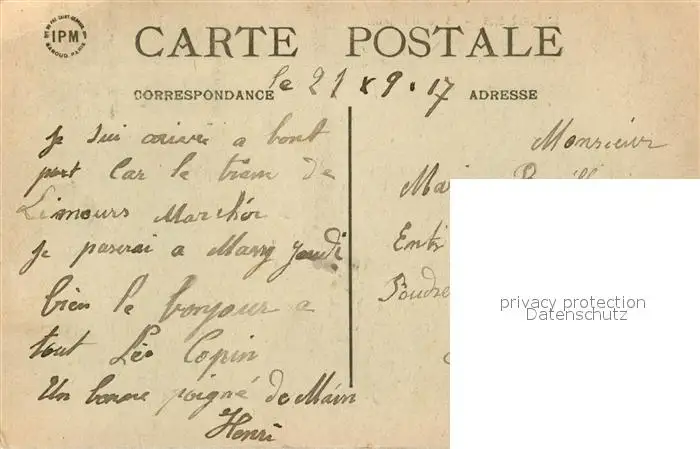 IPM
CARTE POSTALE
CORRESPONDANCE le 21 x 9 . 17 ADRESSE
Je sui arivé a bont
port Car le train de
Limours Marchér
Je paserai a Massy Jeudi
bien le bonjour a
tout Lès Copin
Un bonne poigné de Main
Henri
Monsieur
Entr
Poudre
privacy protection
Datenschutz